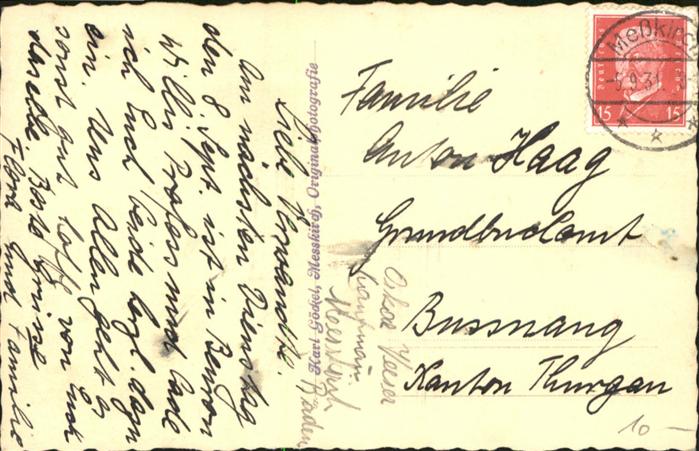 Liebe Verwandte.
Am nächsten Dienstag
den 8. Sept. ist in Beuron
Willis Profess und lade
ich Euch beide dazu
ein. Uns Allen geht es
sonst gut hoffe von Euch
dasselbe. Beste Grüsse
Flora und Familie
Karl Göckel, Messkirch, Originalphotografie
Oskar
Kaufmann
Messkirch
Baden
Familie
Anton Haag
Grundbuchamt
Bussnang
Kanton Thurgau
Meßkirch
-5.9.31
15 15
10 -